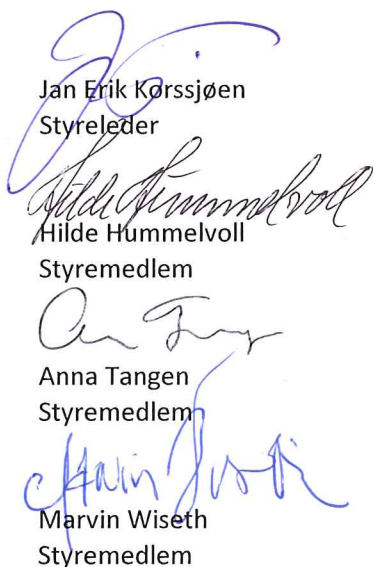 Jan Erik Korssjøen
Styreleder
Hilde Hummelvoll
Hilde Hummelvoll
Styremedlem
Anna Tangen
Styremedlem
Marvin Wiseth
Styremedlem